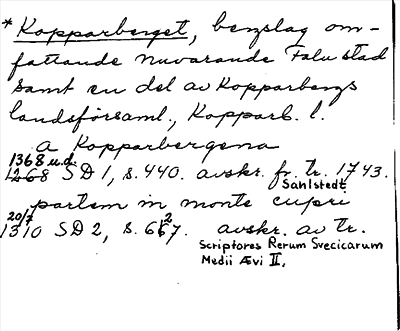 * Kopparberget, bergslag om-
fattande nuvarande Falu stad
samt en del av Kopparbergs
landsförsaml., Kopparb. l.
a Kopparbergena
1368 u.d.
1268 SD 1, s. 440. avskr. fr. tr. 1743.
Sahlstedt
partem in monte cupri
20/7 2
1310 SD 2, s. 667. avskr. av tr.
Scriptores Rerum Svecicarum
Medii Ævi II.